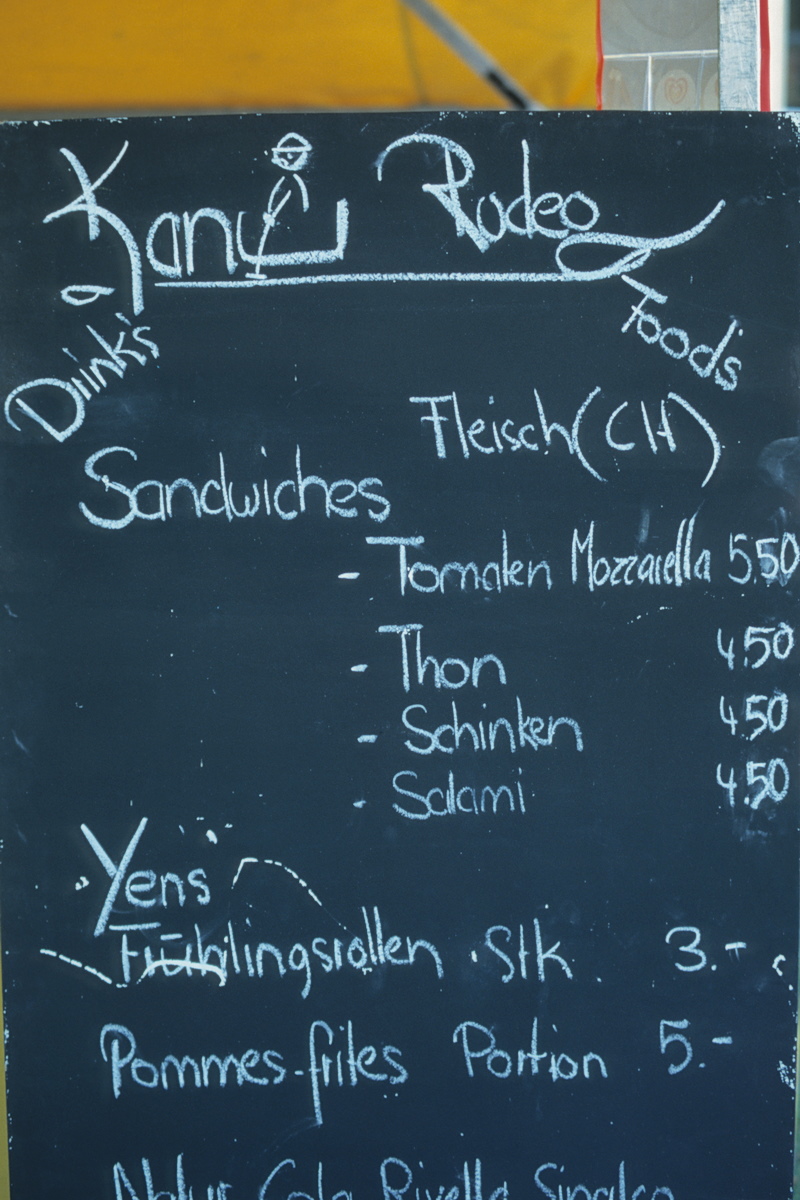 Kanu Rodeo
Drink's
Food's
Fleisch (CH)
Sandwiches
- Tomaten Mozzarella 5.50
- Thon 4.50
- Schinken 4.50
- Salami 4.50
Yens
Frühlingsrollen Stk. 3.-
Pommes-frites Portion 5.-
Natur Cola Rivella Sinalco